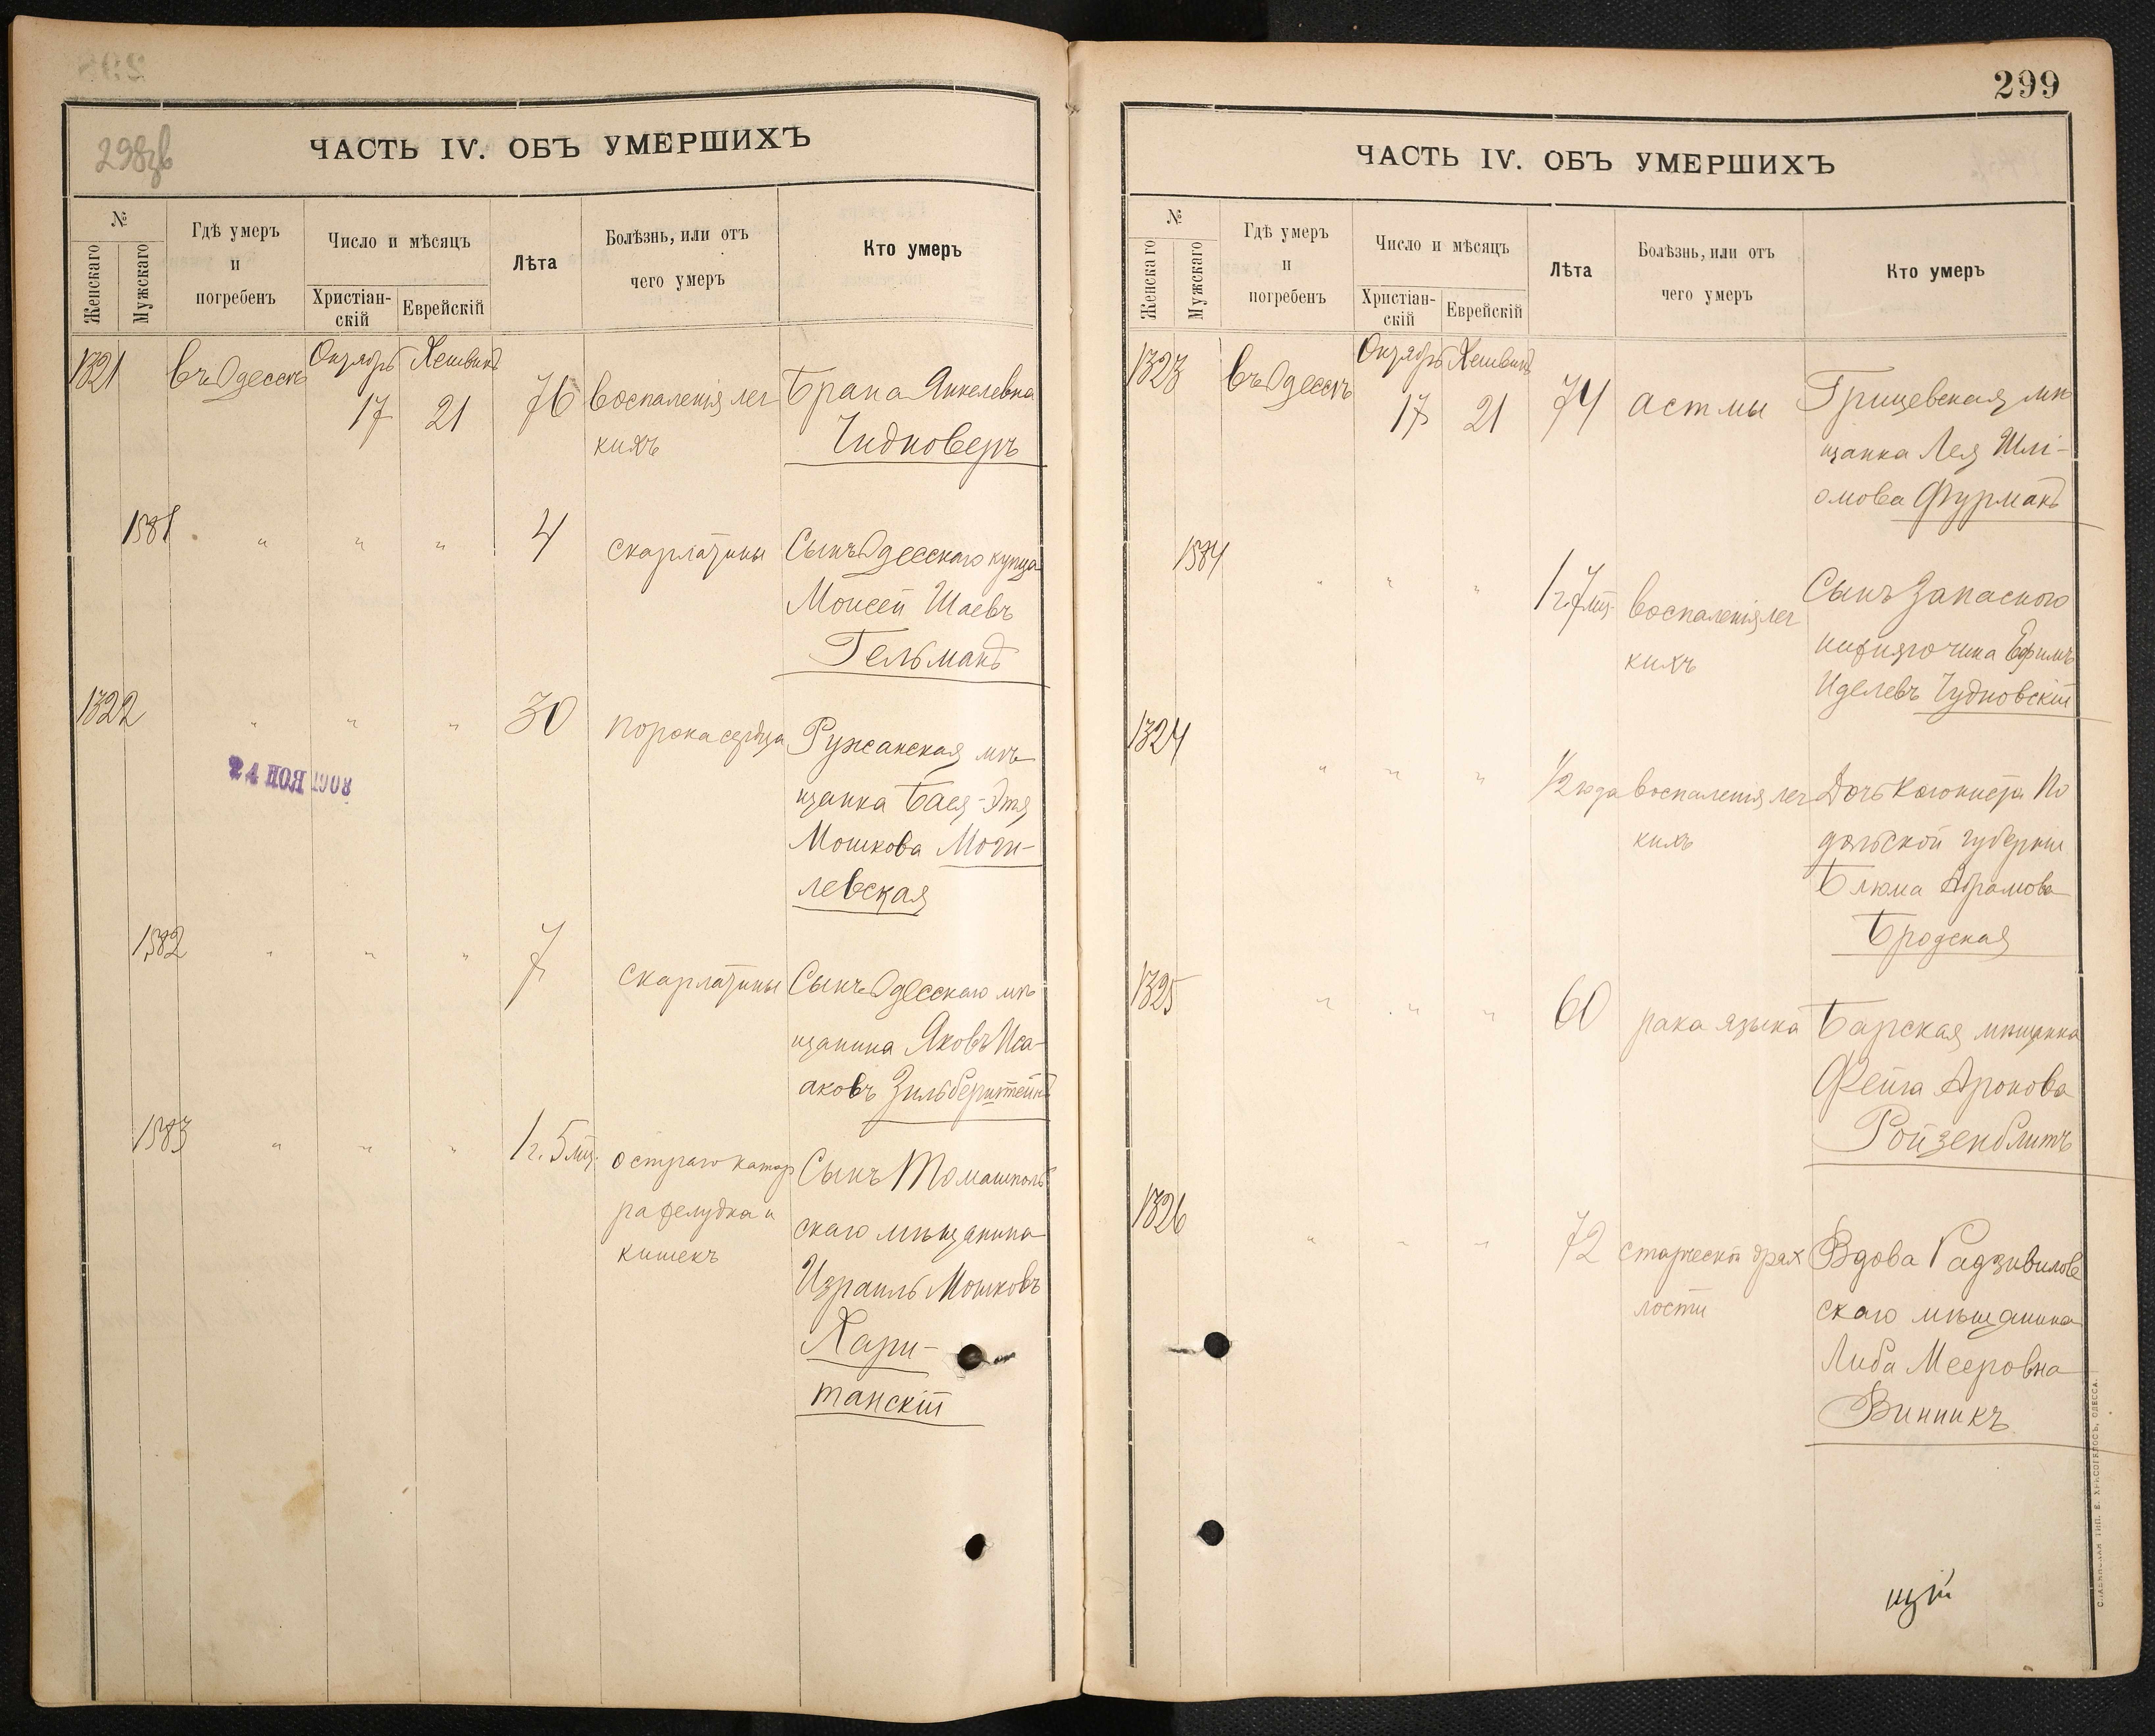 298зв
ЧАСТЬ IV. ОБЪ УМЕРШИХЪ
№
Женскаго
Мужскаго
Гдѣ умеръ
и
погребенъ
Число и мѣсяцъ
Христіан-
скій
Еврейскій
Лѣта
Болѣзнь, или отъ
чего умеръ
Кто умеръ
1321 въ Одессѣ Октябрь Хешванъ
17 21 76 воспаленія лег
кихъ
Брана Янкелевна
Чидноверъ
1581 " " " 4 скарлатины
Сынъ Одесскаго купца
Моисей Шаевъ
Гельманъ
1322 " " " 30 порока сердца
Ружанская мѣ
щанка Бася-Этя
Мошкова Моги-
левская
24 НОЯ 1908
1582 " " " 7 скарлатины
Сынъ Одесскаго мѣ
щанина Яковъ Иса-
аковъ Зильберштейнъ
1583 " " " 1 г. 5 мц. остраго катар
ра желудка и
кишекъ
Сынъ Томашполь
скаго мѣщанина
Израиль Мошковъ
Хари-
танскій
299
ЧАСТЬ IV. ОБЪ УМЕРШИХЪ
№
Женскаго
Мужскаго
Гдѣ умеръ
и
погребенъ
Число и мѣсяцъ
Христіан-
скій
Еврейскій
Лѣта
Болѣзнь, или отъ
чего умеръ
Кто умеръ
1323 въ Одессѣ Октябрь Хешванъ
17 21 74 астмы
Грицевская мѣ
щанка Лея Шлі-
омова Фурманъ
1584 " " " 1 г. 7 мц. воспаленія лег
кихъ
Сынъ Запаснаго
нижняго чина Ефимъ
Иделевъ Чудновскій
1324 " " " 1/2 года воспаленія лег
кихъ
Дочь Колониста По
дольской губерніи
Блюма Абрамова
Бродская
1325 " " " 60 рака языка
Барская мѣщанка
Фейга Аронова
Ройзенблитъ
1326 " " " 72 старческой дрях
лости
Вдова Радзивилов
скаго мѣщанина
Либа Мееровна
Винникъ
СЛАВЯНСКАЯ ТИП. Е. ХРИСОГЕЛОСЪ, ОДЕССА.